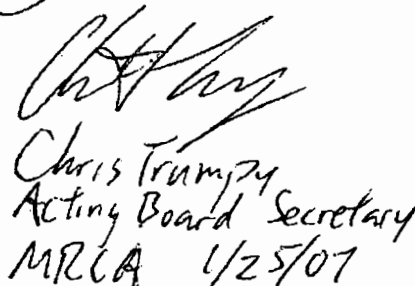 Chris Trumpy
Acting Board Secretary
MRCA 1/25/07